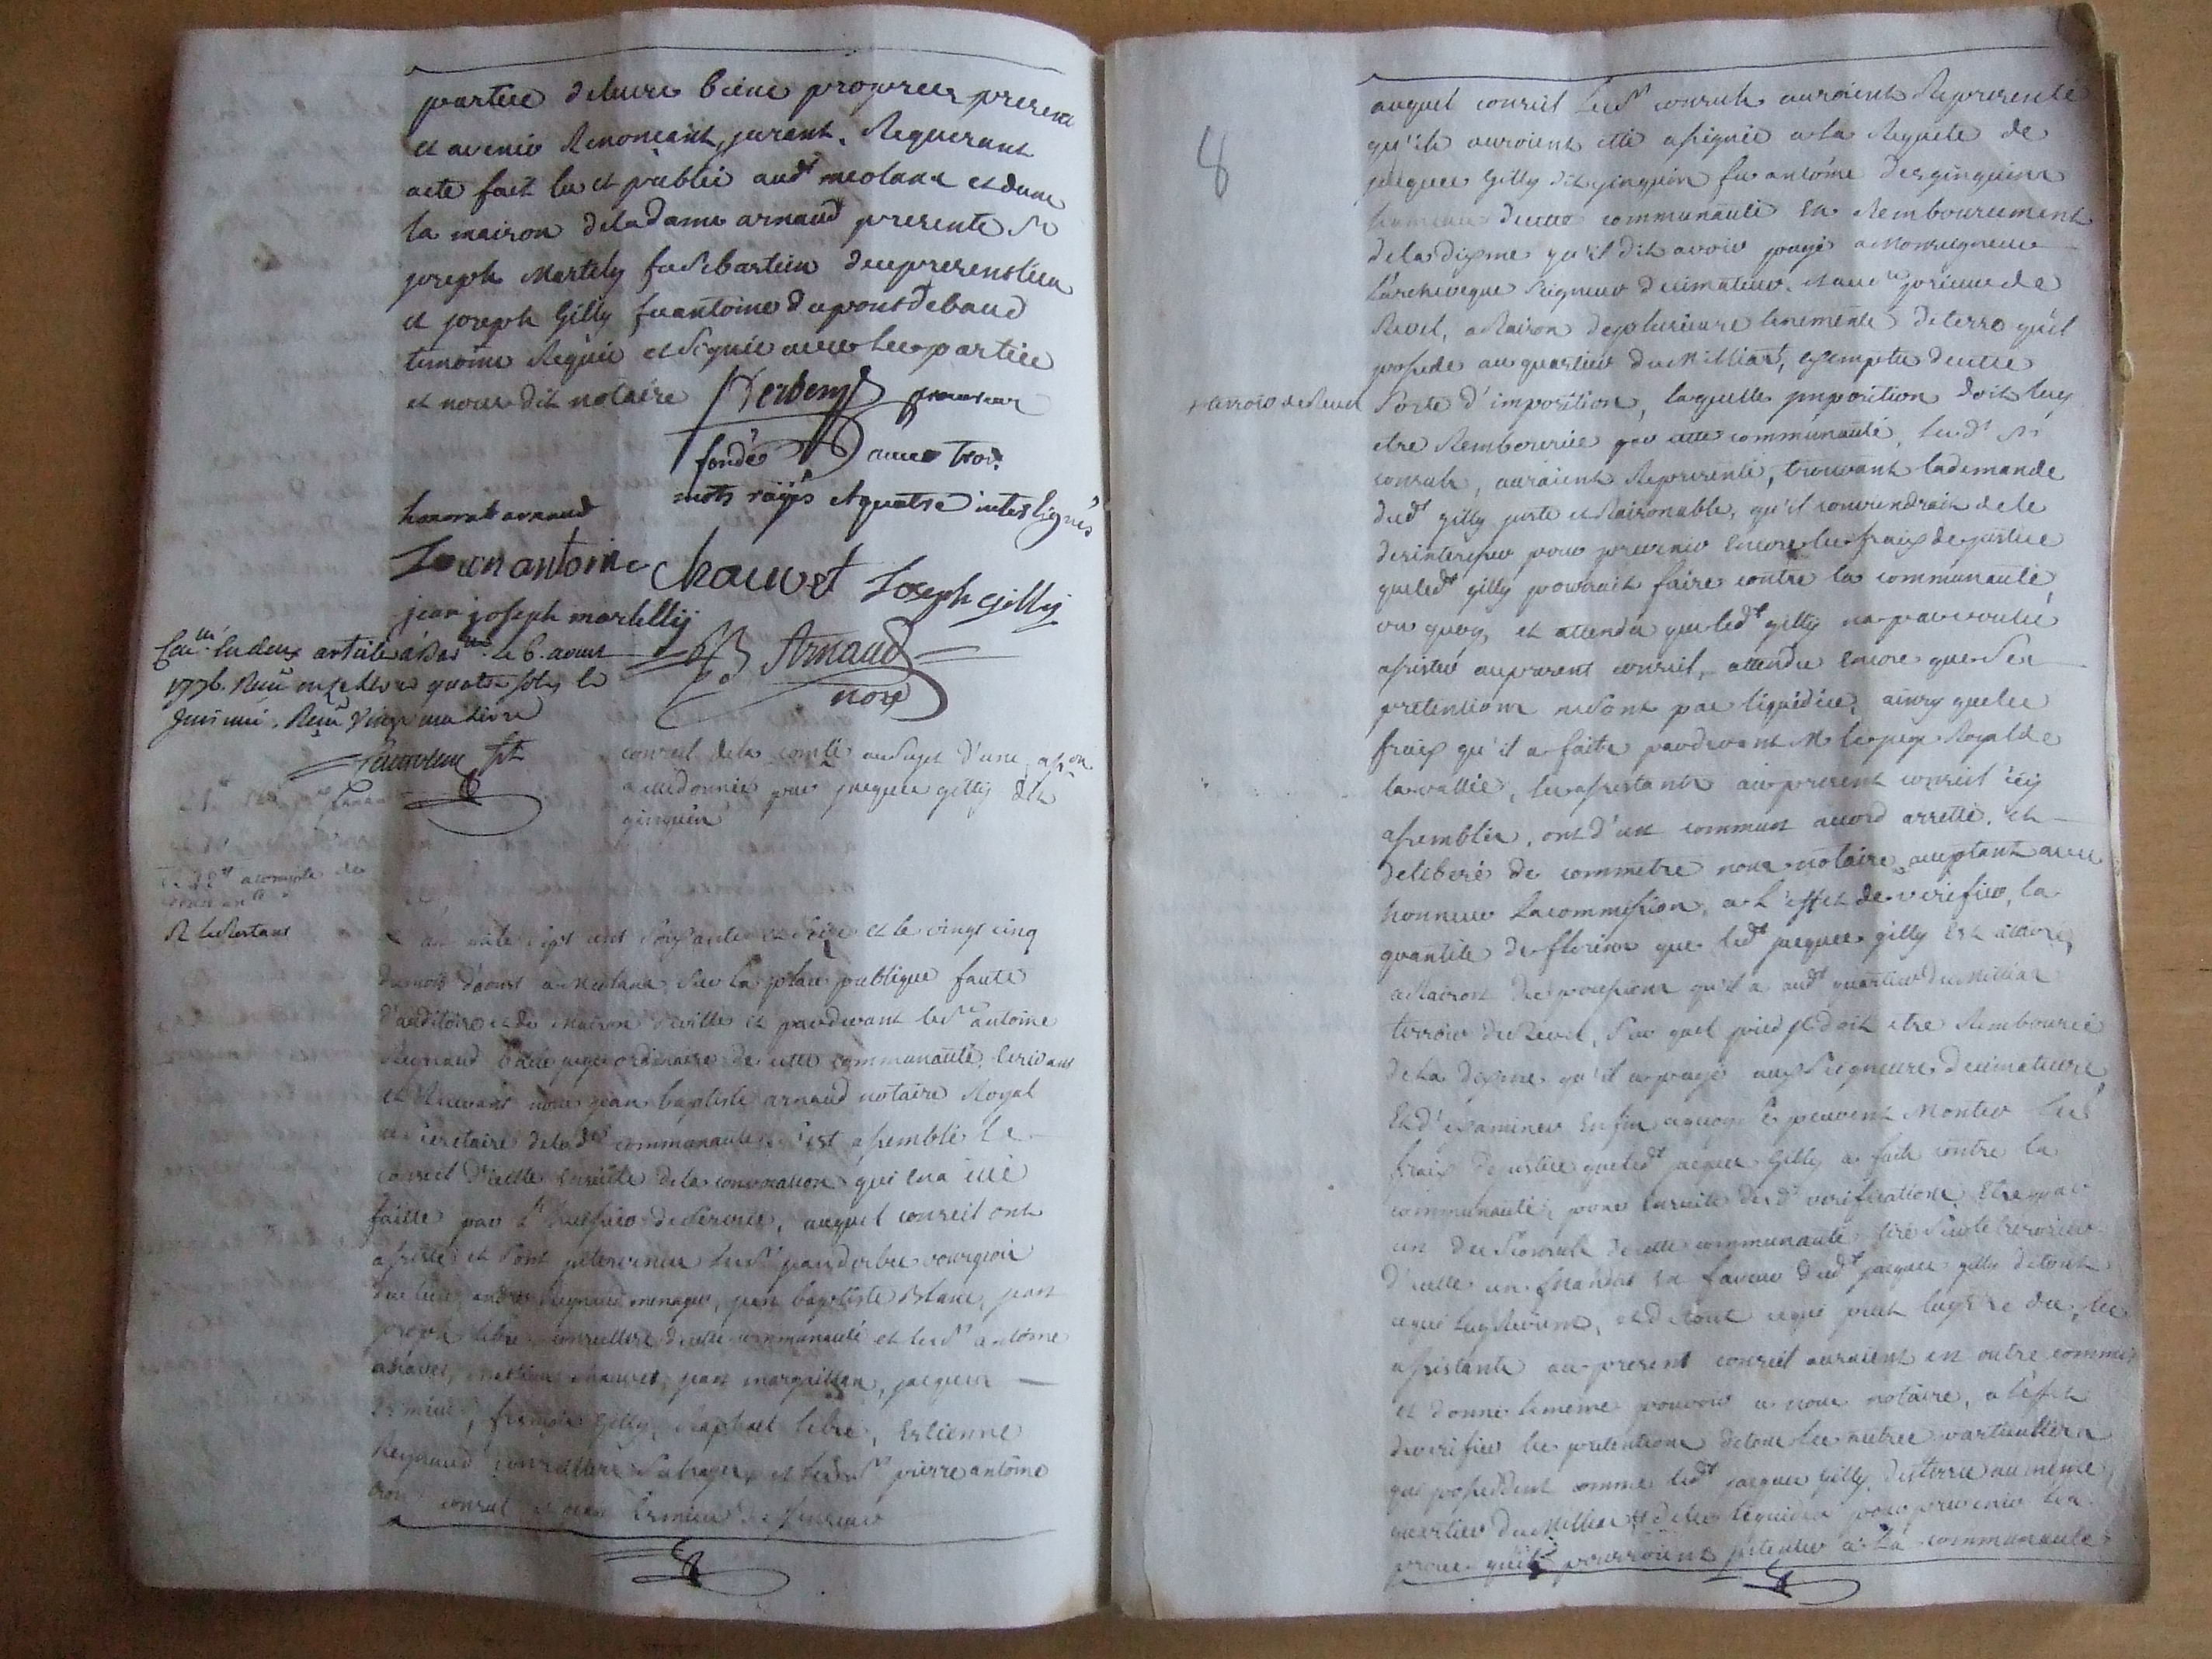 partie de leurs biens propres present
et avenir Renonçant, jurant. Requerant
acte fait lu et publié aud.t meolans et dans
la maison de la dame arnaud presents Sr
joseph Martely fu Sebastien du present lieu
et joseph Gilly fu antoine du pont de baud
temoins Requis et Signés avec les parties
et nous dit notaire
procureur
fondé avec trois
mots rayés et quatre interlignés
honorat arnaud
Jean antoine Chauvet Joseph gilly
jean joseph martellij
Arnaud
nore
Con.lé les deux articles à le 6. aoust
1776. Reçu quatre sols le
Reçu vingt un livre
conseil de la com.té au Sujet d'une as.on
a elle donnée par jacques gilly dit
ginguin
acompte de
R le Restant
L'an mile sept cent Soixante et Seize et le vingt cinq
du mois d'aoust a Meolans, Sur la place publique faute
d'auditoire et de Maison de ville et pardevant le Sr antoine
Reynaud baile juge ordinaire de cette communauté, Ecrivant
et Recevant nous jean baptiste arnaud notaire Royal
et Secretaire de lad.te communauté, s'est assemblé le
conseil d'icelle Ensuite de la convocation qui en a eté
faitte par L'huissier de Service, auquel conseil ont
assisté et Sont intervenus les Srs bourgeois
du lieu, andré Reynaud menager, jean baptiste Blanc, jean
joseph conseillers de cette communauté et les Srs antoine
chauvet, jean jacques
françois Gilly, Raphael Estienne
Reynaud conseillers et les Srs pierre antoine
consul et jean
8
auquel conseil Les Srs consuls auroient Representé
qu'ils auroient etté assignés a la Requete de
jacques Gilly dit ginguin fu antoine des ginguins
hameau de cette communauté En Remboursement
de la dixme qu'il dit avoir payé a Monseigneur
L'archeveque Seigneur decimateur, et au prieur de
Revel, a Raison de plusieurs tenements de terre qu'il
possede au quartier du Milliar, exempte de cette
+ terroir de Revel
Sorte d'imposition, laquelle jmposition doit luy
etre Remboursée par cette communauté, Lesd.ts Srs
consuls, auraient Representé, trouvant la demande
dud.t gilly juste et Raisonable, qu'il conviendrait de le
desinteresser pour prevenir Encore les fraix de justice
que led.t gilly pourrait faire contre la communauté,
sur quoy, et attendu que led.t gilly na pas voulu
assister au present conseil, attendu Encore que Ses
pretentions ne Sont pas liquidées, ainsy que les
fraix qu'il a faits pardevant Mr le juge Royal de
la vallée, les assistants au present conseil icy
assemblés, ont d'un commun accord arretté, et
deliberé de commettre nous notaire acceptant avec
honneur La commission, a L'effet de verifier, la
quantité de florins que led.t jacques gilly Est
a Raison des possessions qu'il a aud.t quartier du Milliar
terroir de Revel, Sur quel pied jl doit etre Remboursé
de la dixme qu'il a payé aux Seigneurs decimateurs,
Et d'examiner En fin a quoy peuvent Monter les
fraix de justice que led.t jacques Gilly a fait contre la
communauté, pour Ensuite desd.tes verifications Etre par
un des Sr consuls de cette communauté tiré Sur le tresorier
d'icelle un Mandat En faveur dud.t jacques gilly de tout
ce qui luy Revient, et de tout ce qui peut luy etre du, les
assistants au present conseil auraient en outre commis
et donné le meme pouvoir a nous notaire, a l'effet
de verifier les pretentions de tous les autres particulliers
qui possedent comme led.t jacques Gilly des terres au meme
quartier du Milliar et de les liquider pour prevenir les
proces qu'ils pourroient jntenter a La communauté